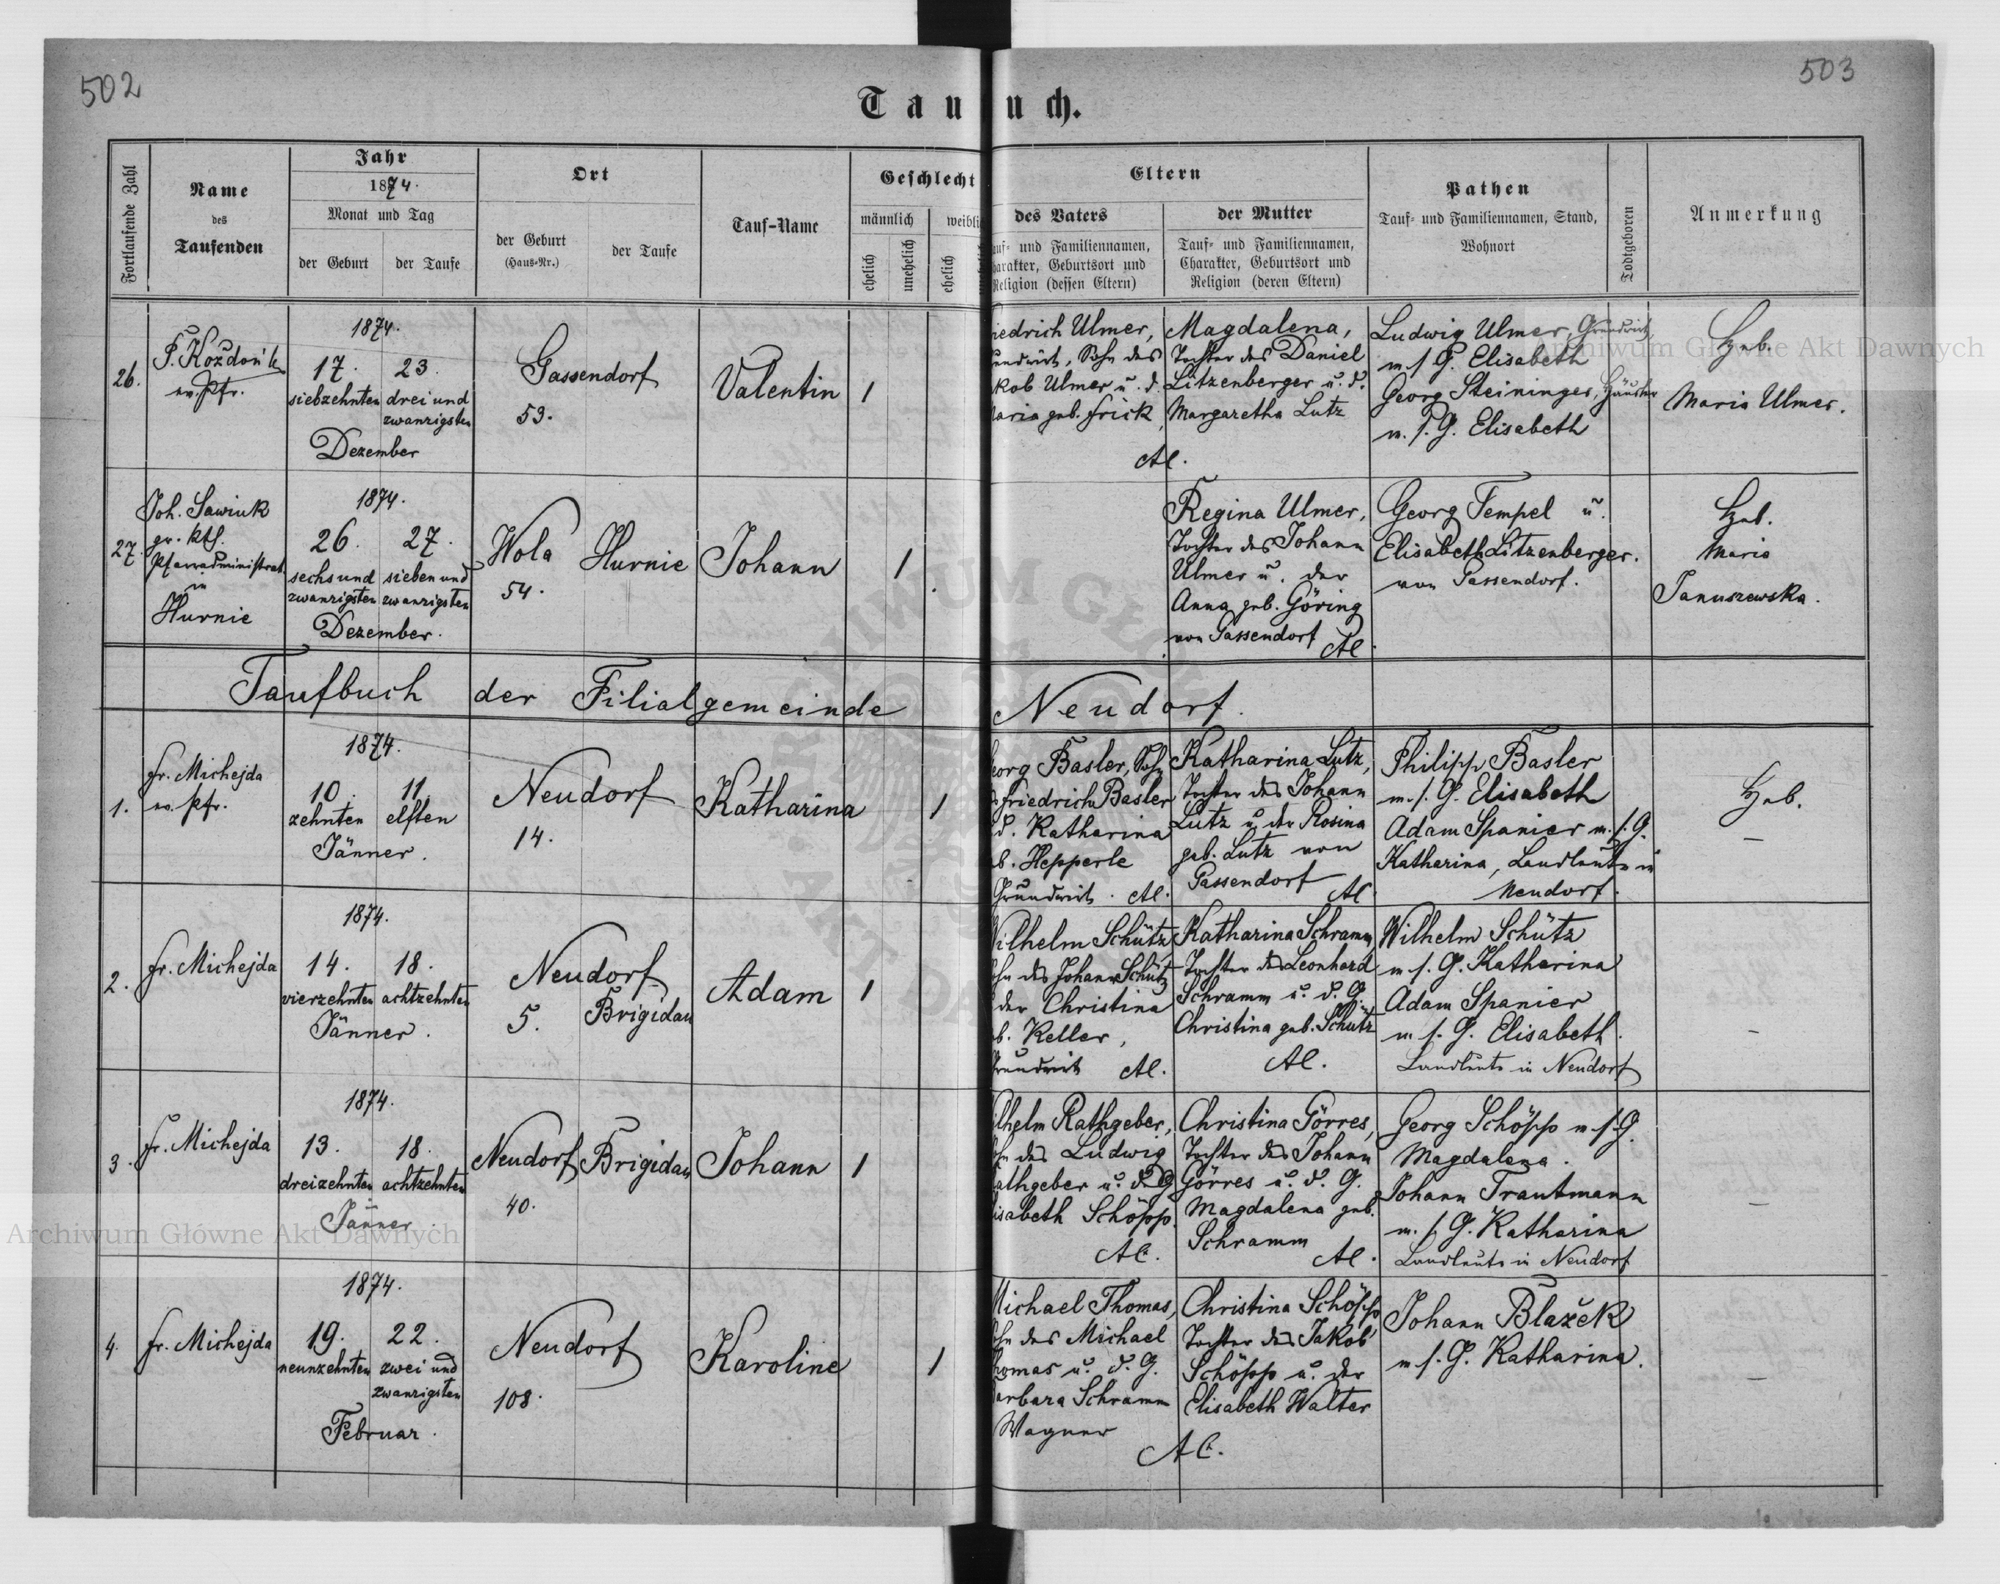 502
503
Tau
uch.
Fortlaufende Zahl
Name
des
Taufenden
Jahr
1874.
Monat und Tag
der Geburt
der Taufe
Ort
der Geburt
(Haus-Nr.)
der Taufe
Tauf-Name
Geschlecht
männlich
weibli
ehelich
unehelich
ehelich
Eltern
des Vaters
auf- und Familiennamen,
harakter, Geburtsort und
Religion (dessen Eltern)
der Mutter
Tauf- und Familiennamen,
Charakter, Geburtsort und
Religion (deren Eltern)
Pathen
Tauf- und Familiennamen, Stand,
Wohnort
Todtgeboren
Anmerkung
26.
P. Kozdoń k
ev. Pfr.
1874.
17. 23.
siebzehnten drei und
zwanzigsten
Dezember
Gassendorf
53.
Valentin
1
riedrich Ulmer,
undwirt, Sohn des
kob Ulmer u. d.
Maria geb. Frick,
Al.
Magdalena,
Tochter des Daniel
Litzenberger u. d.
Margaretha Lutz
Ludwig Ulmer, Grundwirt,
m. s. G. Elisabeth
Georg Steininger, Häusler
m. s. G. Elisabeth
Heb.
Maria Ulmer.
27.
Joh. Sawiuk
gr. kth.
Pfarradministrat
in
Hurnie
1874.
26. 27.
sechs und sieben und
zwanzigsten zwanzigsten
Dezember.
Wola
54.
Hurnie
Johann
1
Regina Ulmer,
Tochter des Johann
Ulmer u. der
Anna geb. Göring
von Gassendorf
Al.
Georg Tempel u.
Elisabeth Litzenberger.
von Gassendorf.
Heb.
Maria
Januszewska.
Taufbuch der Filialgemeinde Neudorf.
1.
Fr. Michejda
ev. Pfr.
1874.
10. 11.
zehnten elften
Jänner.
Neudorf
14.
Katharina
1
eorg Basler, Sohn
s Friedrich Basler
d. Katharina
b. Hepperle
Grundwirt. Al.
Katharina Lutz,
Tochter des Johann
Lutz u. der Rosina
geb. Lutz von
Gassendorf
Al.
Philipp Basler
m. s. G. Elisabeth
Adam Spanier m. s. G.
Katharina, Landleute in
Neudorf.
Heb.
—
2.
Fr. Michejda
1874.
14. 18.
vierzehnten achtzehnten
Jänner.
Neudorf
5.
Brigidau
Adam
1
Wilhelm Schütz
ohn des Johann Schütz
der Christina
b. Keller,
Grundwirt Al.
Katharina Schramm
Tochter des Leonhard
Schramm u. d. G.
Christina geb. Schütz
Al.
Wilhelm Schütz
m. s. G. Katharina
Adam Spanier
m. s. G. Elisabeth.
Landleute in Neudorf
—
3.
Fr. Michejda
1874.
13. 18.
dreizehnten achtzehnten
Jänner.
Neudorf
40.
Brigidau
Johann
1
ilhelm Rathgeber,
ohn des Ludwig
athgeber u. d. G.
isabeth Schöpp.
Al.
Christina Görres,
Tochter des Johann
Görres u. d. G.
Magdalena geb.
Schramm
Al.
Georg Schöpp m. s. G.
Magdalena.
Johann Trautmann
m. s. G. Katharina
Landleute in Neudorf
—
4.
Fr. Michejda
1874.
19. 22.
neunzehnten zwei und
zwanzigsten
Februar.
Neudorf
108.
Karoline
1
Michael Thomas,
ohn des Michael
homas u. d. G.
arbara Schramm
Wagner
Al.
Christina Schöpp
Tochter des Jakob
Schöpp u. der
Elisabeth Walter
Johann Blažek
m. s. G. Katharina.
—
Archiwum Główne Akt Dawnych
Archiwum Główne Akt Dawnych